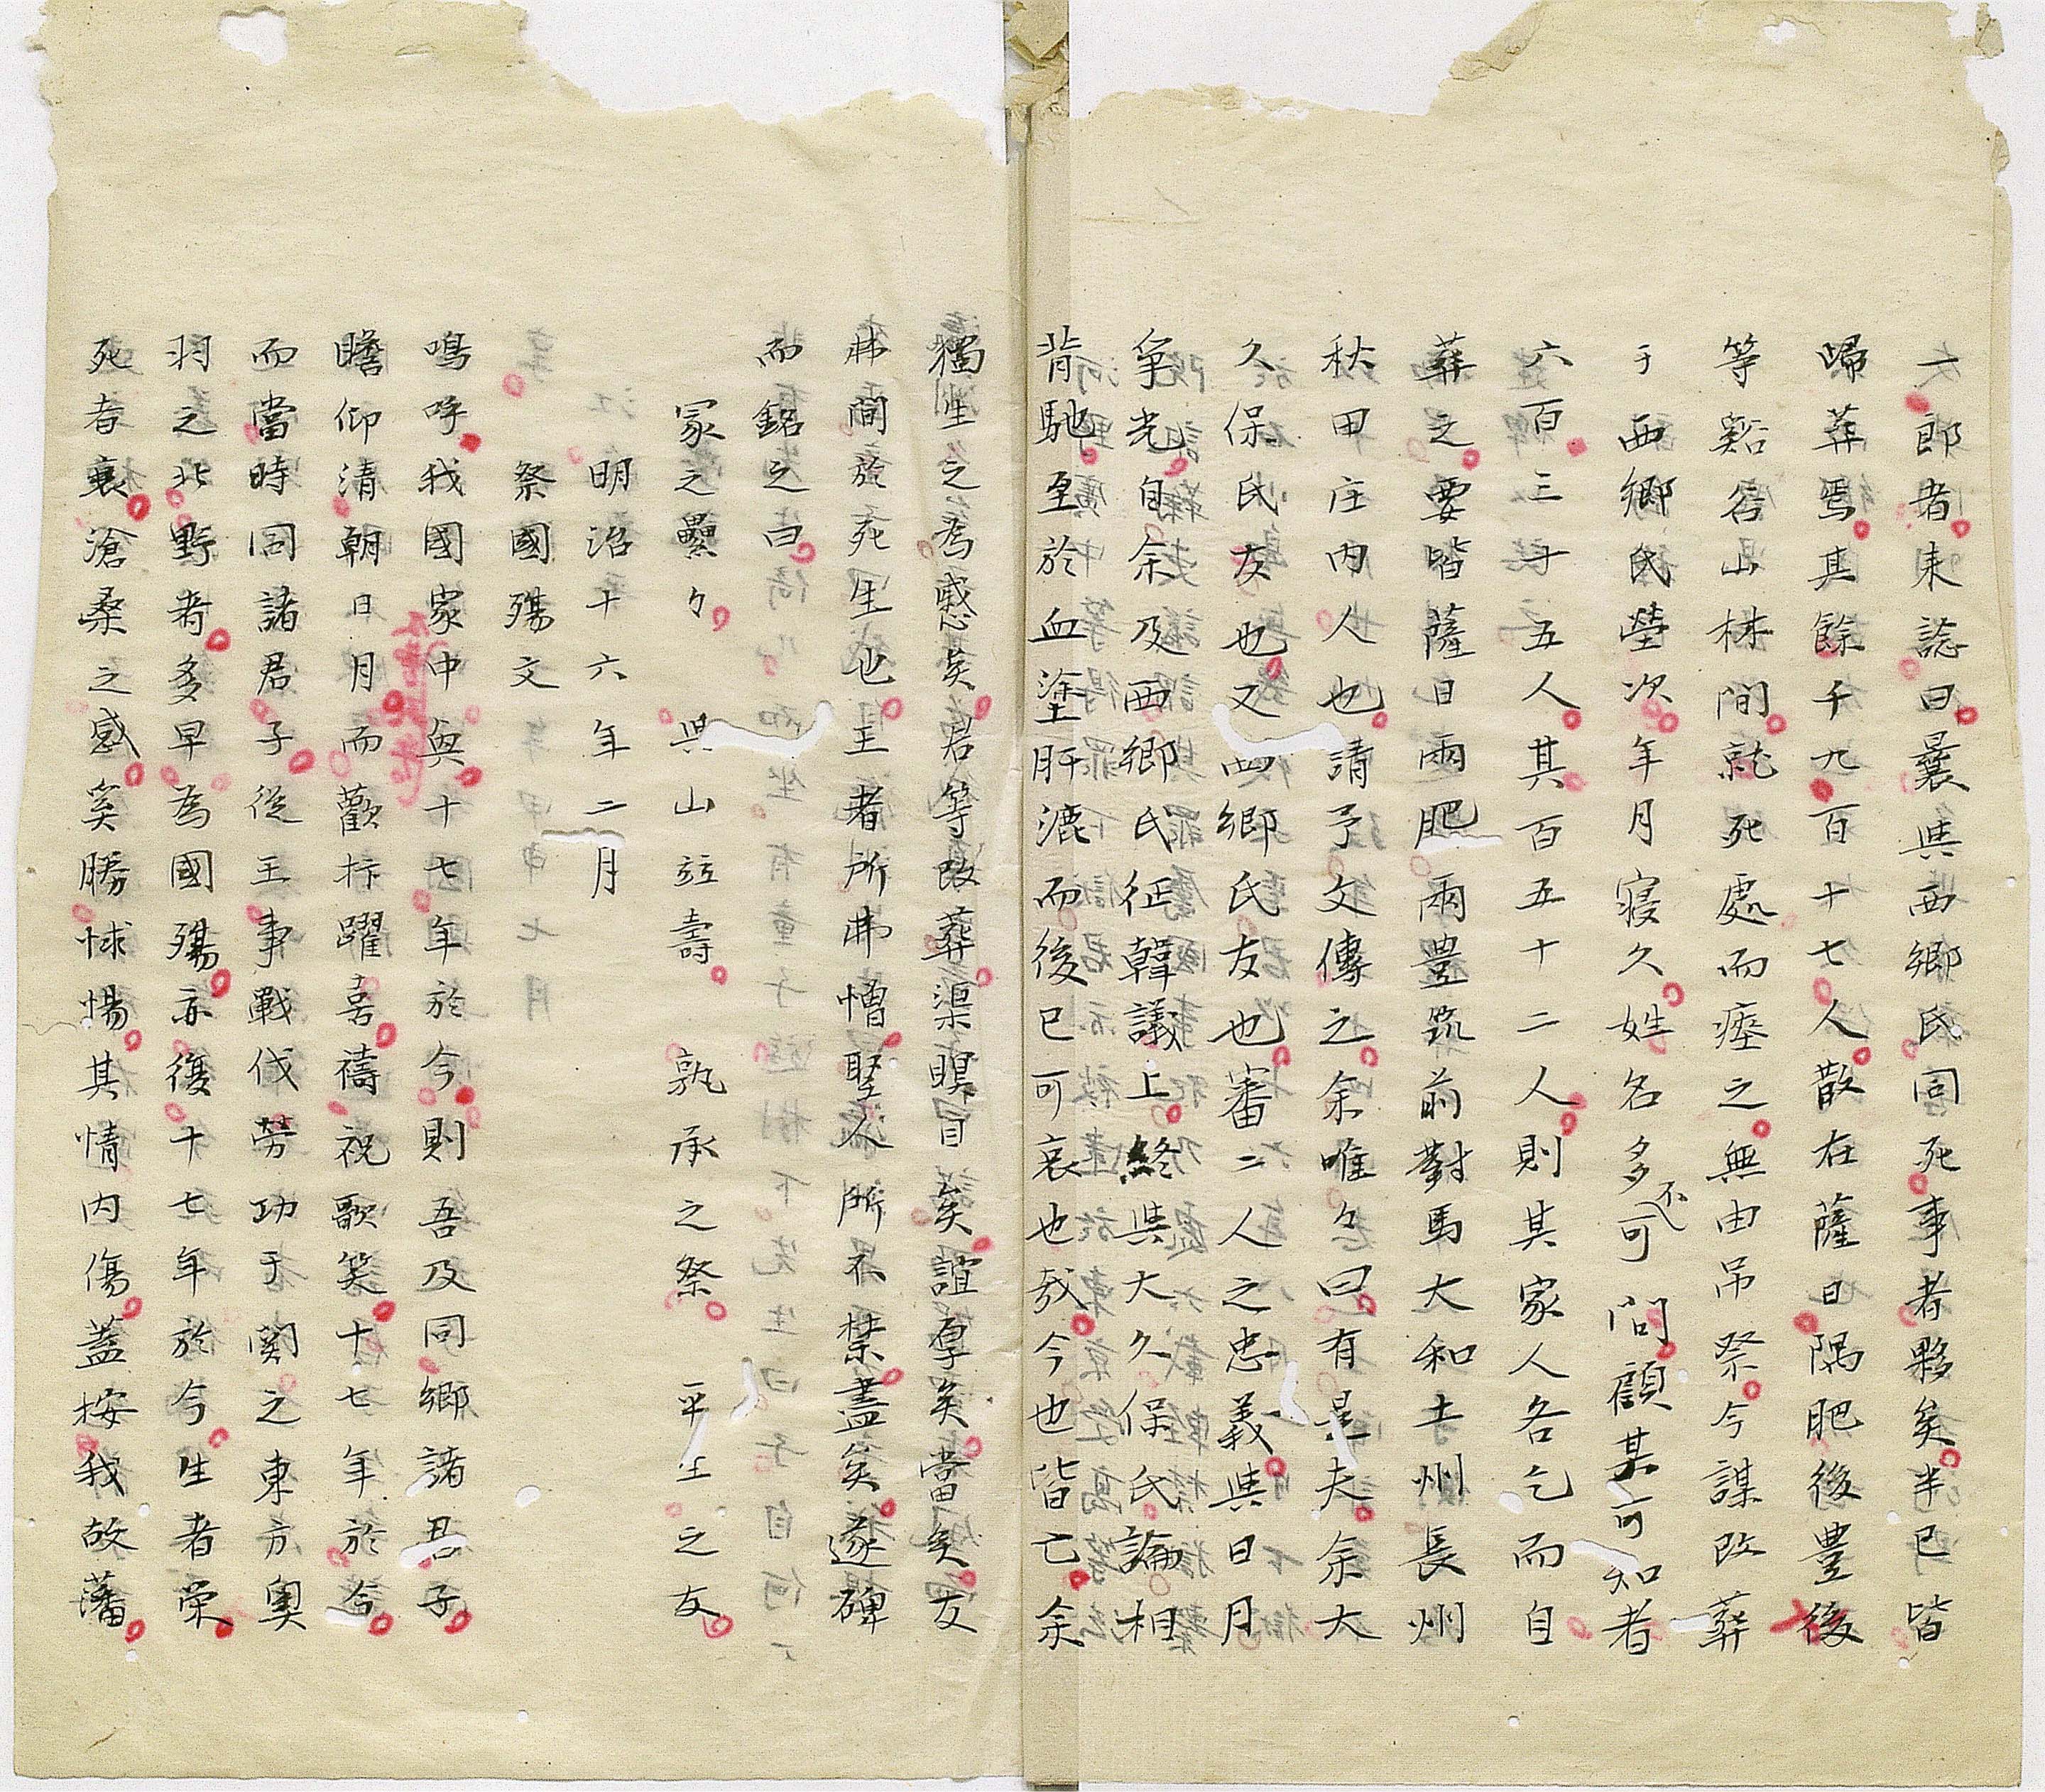 一郎者来諗曰曩與西郷氏同死事者夥矣半已皆
歸葬焉其餘千九百十七人散在薩日隅肥後豊後
等谿谷山林間就死處而瘞之無由吊祭今謀改葬
于西郷氏塋次年月寝久姓名多不可問顧某可知者
六百三十五人其百五十二人則其家人各乞而自
葬之要皆薩日兩肥兩豊筑前對馬大和土州長州
秋田庄内人也請予文傳之余唯々曰有是夫余大
久保氏友也又西郷氏友也審二人之忠義與日月
爭光自余及西郷氏征韓議上終與大久保氏論相
背馳至於血塗肝漉而後已可哀也哉今也皆亡余
獨生之為慼矣君等改葬渠瞑目矣誼厚矣當矣友
弗間於死生也王者所弗憎聖人所不禁盡矣遂碑
而銘之曰
冢之纍々 與山竝壽 孰承之祭 平生之友
明治十六年二月
祭國殤文
嗚呼我國家中興十七年於今則吾及同郷諸君子
瞻仰清朝日月而歡抃躍喜禱祝歌笑十七年於今
而當時同諸君子從王事戰伐労功于関之東方奥
羽之北野者多早為國殤亦復十七年於今生者栄
死者哀滄桑之感矣勝怵惕其情内傷蓋按我故藩